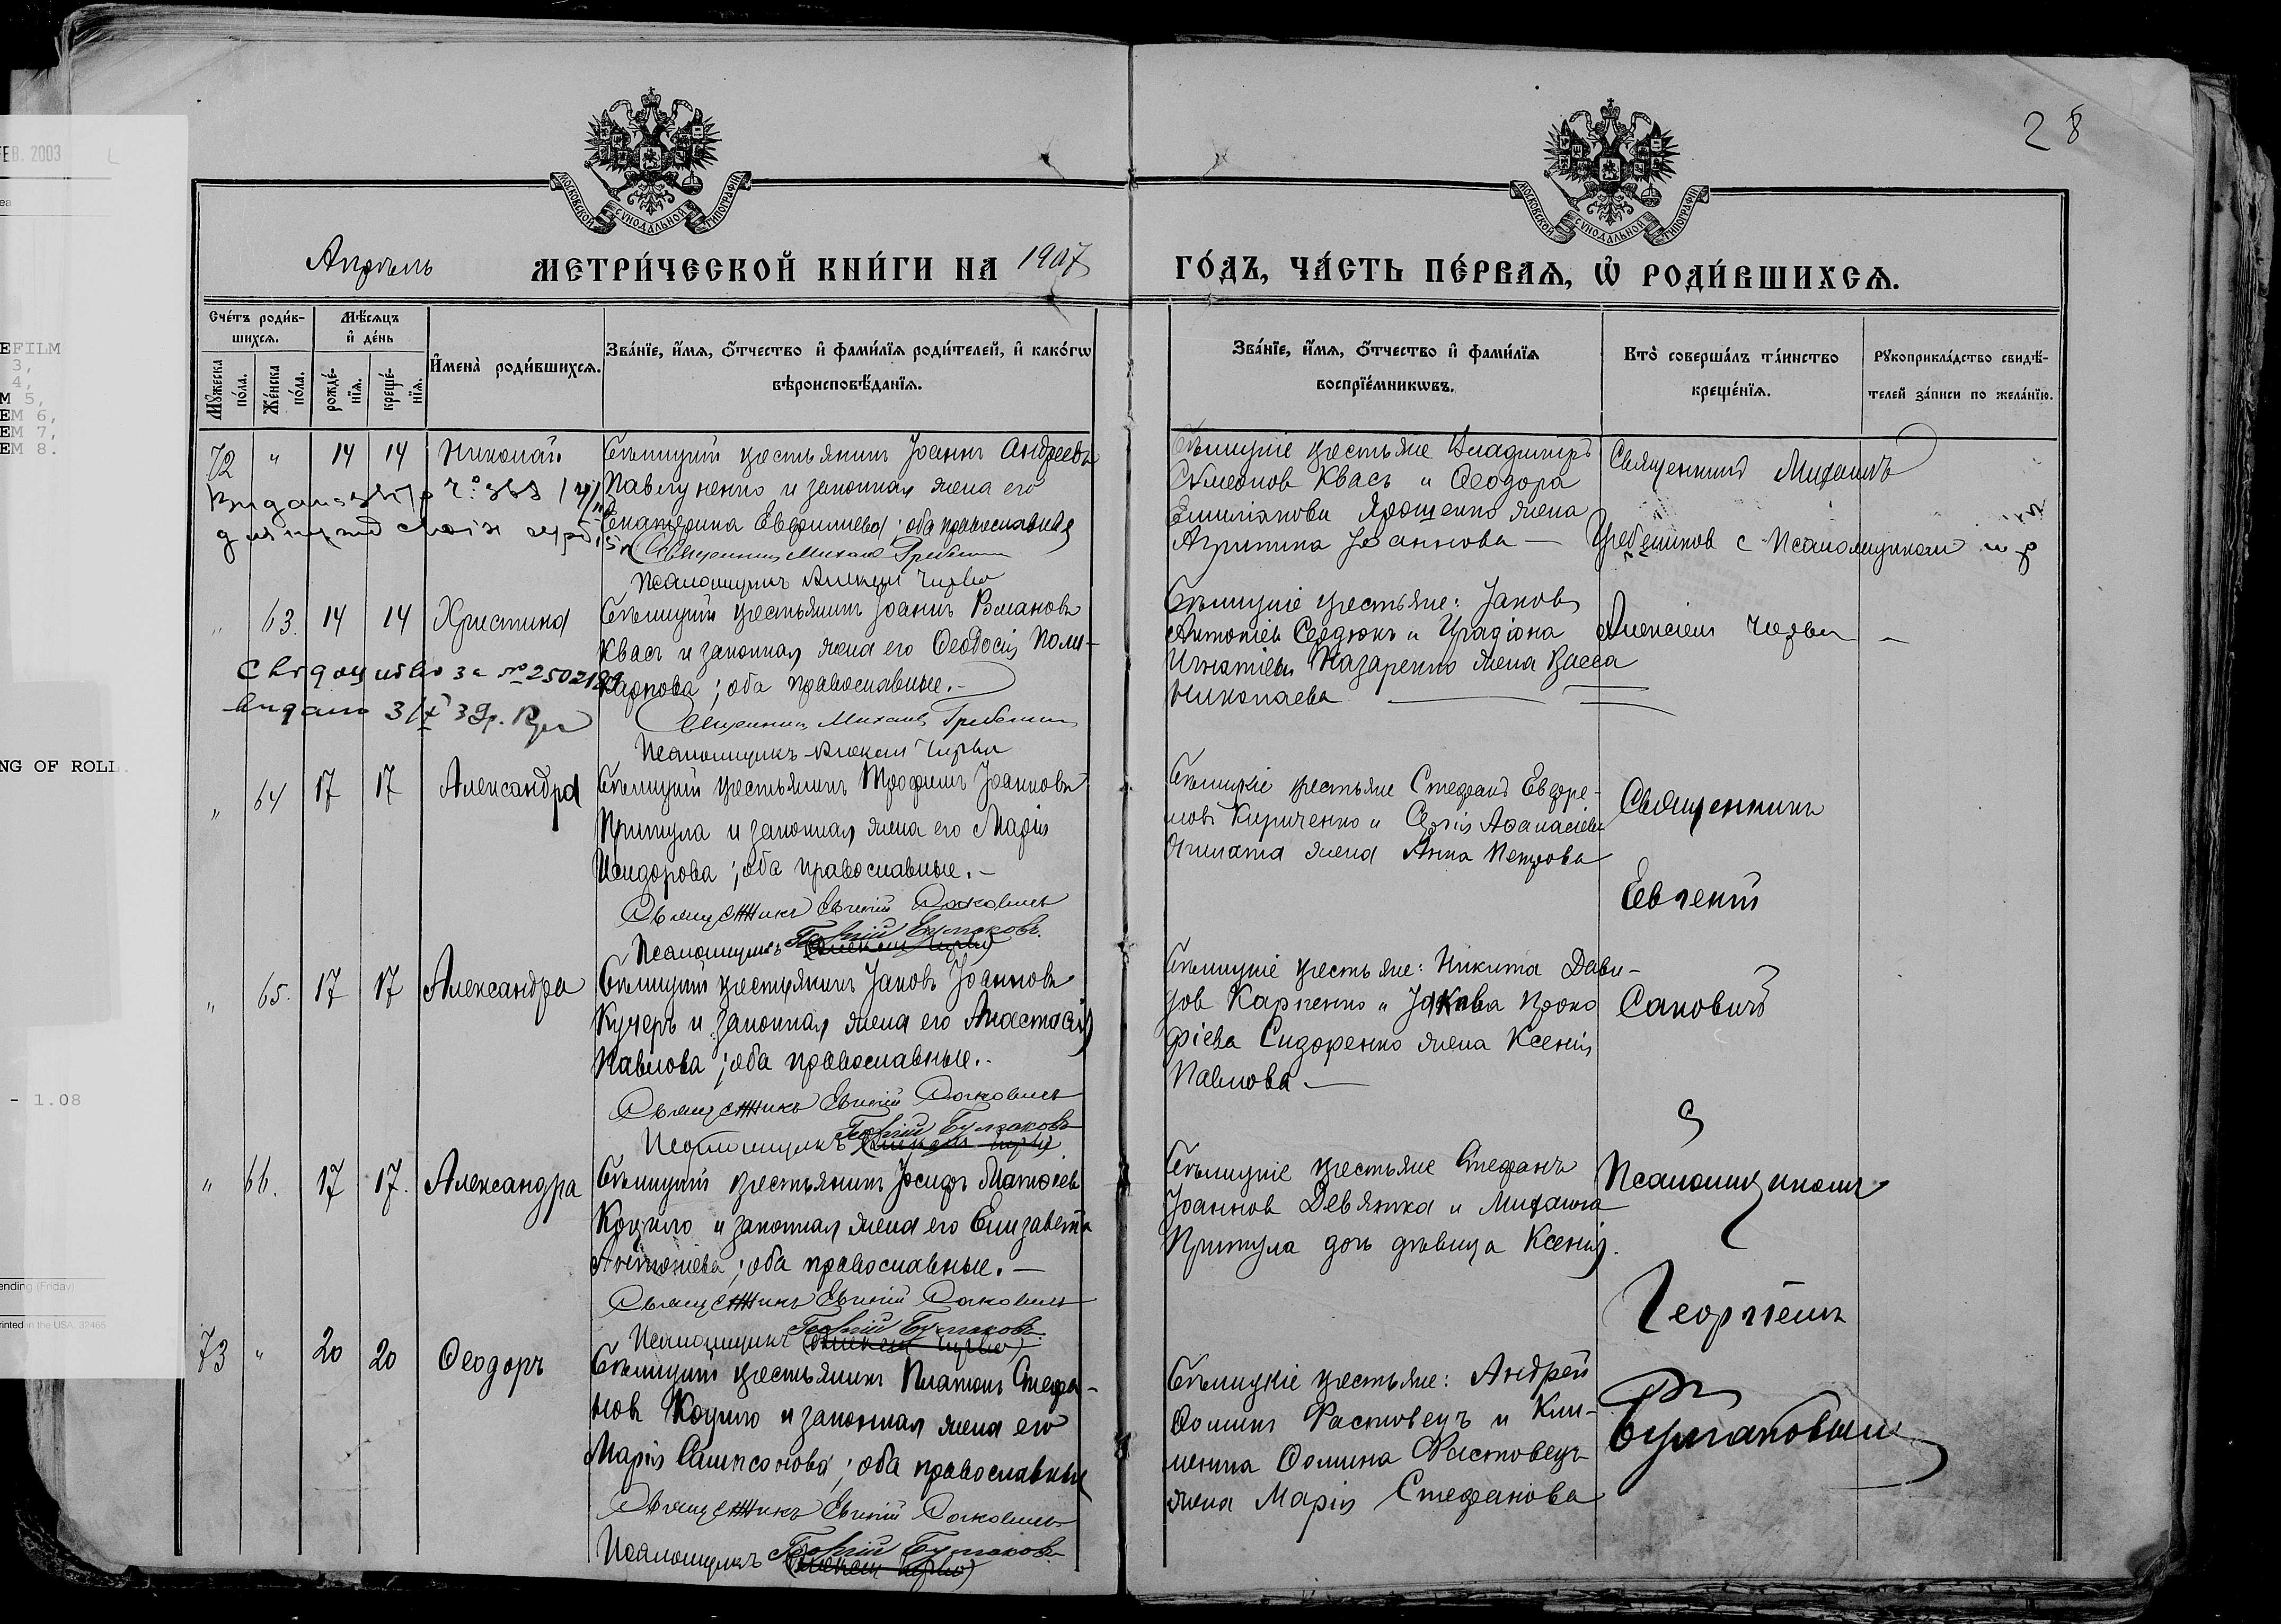 28
FEB. 2003
МОСКОВСКОЙ СУНОДАЛЬНОЙ ТИПОГРАФІИ
МОСКОВСКОЙ СУНОДАЛЬНОЙ ТИПОГРАФІИ
Апрѣль МЕТРИ́ЧЕСКОЙ КНИ́ГИ НА 1907
ГО́ДЪ, ЧА́СТЬ ПЕ́РВАѦ, Ѡ҆ РОДИ́ВШИХСѦ.
Сче́тъ роди́в-
шихсѧ.
Мꙋ́жеска по́ла.
Же́нска по́ла.
Мѣ́сѧцъ
и҆ де́нь
рожде́-
нїѧ.
креще́-
нїѧ.
И҆мена̀ роди́вшихсѧ.
Зва́нїе, и҆́мѧ, ѻ҆́тчество и҆ фами́лїѧ роди́телей, и҆ како́гѡ
вѣроисповѣ́данїѧ.
Зва́нїе, и҆́мѧ, ѻ҆́тчество и҆ фами́лїѧ
воспрїе́мникѡвъ.
Кто̀ соверша́лъ та́инство
креще́нїѧ.
Рꙋкоприкла́дство свидѣ́-
телей за́писи по жела́нїю.
72 " 14 14 Николай
Бѣлицкій крестьянинъ Іоаннъ Андреевъ
Павлуненко и законная жена его
Екатерина Евфимиева; оба православные
Священникъ Михаил Гребенник
Псаломщикъ Алексій Чирва
Бѣлицкіе крестьяне Владимиръ
Сѵмеонов Квасъ и Ѳеодора
Емилianова Ярошенко жена
Агрипина Іоаннова —
Священникъ Михаилъ
Гребенников с Псаломщиком
" 63. 14 14 Христина
Свідоцтво за № 2502189
видано
Бѣлицкій крестьянинъ Іоаннъ Романовъ
Квасъ и законная жена его Ѳеодосія Поли-
карпова; оба православные.–
Священникъ Михаил Гребенник
Псаломщикъ Алексій Чирва
Бѣлицкіе крестьяне: Іаковъ
Антоніев Сердюкъ и
Игнатіева Назаренко жена Васса
Николаева
Алексіем Чирва –
" 64 17 17 Александра
Бѣлицкій крестьянинъ Трофимъ Іоанновъ
Притула и законная жена его Марія
Исидорова; оба православные.–
Священникъ Евгеній Саковичъ
Псаломщикъ Георгій Булгаковъ
Бѣлицкіе крестьяне Стефанъ Евфре-
мовъ Кириченко и Сергія Аѳанасіева
жена Анна Петрова
Священникъ
Евгеній
" 65. 17 17 Александра
Бѣлицкій крестьянинъ Іаковъ Іоанновъ
Кучеръ и законная жена его Анастасія
Павлова; оба православные.–
Священникъ Евгеній Саковичъ
Псаломщикъ Георгій Булгаковъ
Бѣлицкіе крестьяне: Никита Дави-
дов Карпенко и Іакова Проко
фіева Сидоренко жена Ксенія
Павлова —
Саковичъ
с
" 66. 17 17. Александра
Бѣлицкій крестьянинъ Іосифъ Матѳіевъ
Коцило и законная жена его Елизавета
Антоніева; оба православные.–
Священникъ Евгеній Саковичъ
Псаломщикъ Георгій Булгаковъ
Бѣлицкіе крестьяне Стефанъ
Іоаннов Девятка и Михаила
Притула дочь дѣвица Ксенія.
Псаломщикомъ
Георгіемъ
73 " 20 20 Ѳеодоръ
Бѣлицкій крестьянинъ Платонъ Стефа-
новъ Коцило и законная жена его
Марія Сампсонова; оба православные
Священникъ Евгеній Саковичъ
Псаломщикъ Георгій Булгаковъ
Бѣлицкіе крестьяне: Андрей
Ѳоминъ Фастовецъ и Кли-
мента Ѳомина Фастовецъ
жена Марія Стефанова
Булгаковымъ
EFILM
3,
4,
M 5,
EM 6,
EM 7,
EM 8.
NG OF ROLL
- 1.08
ending (Friday)
rinted in the USA 32465